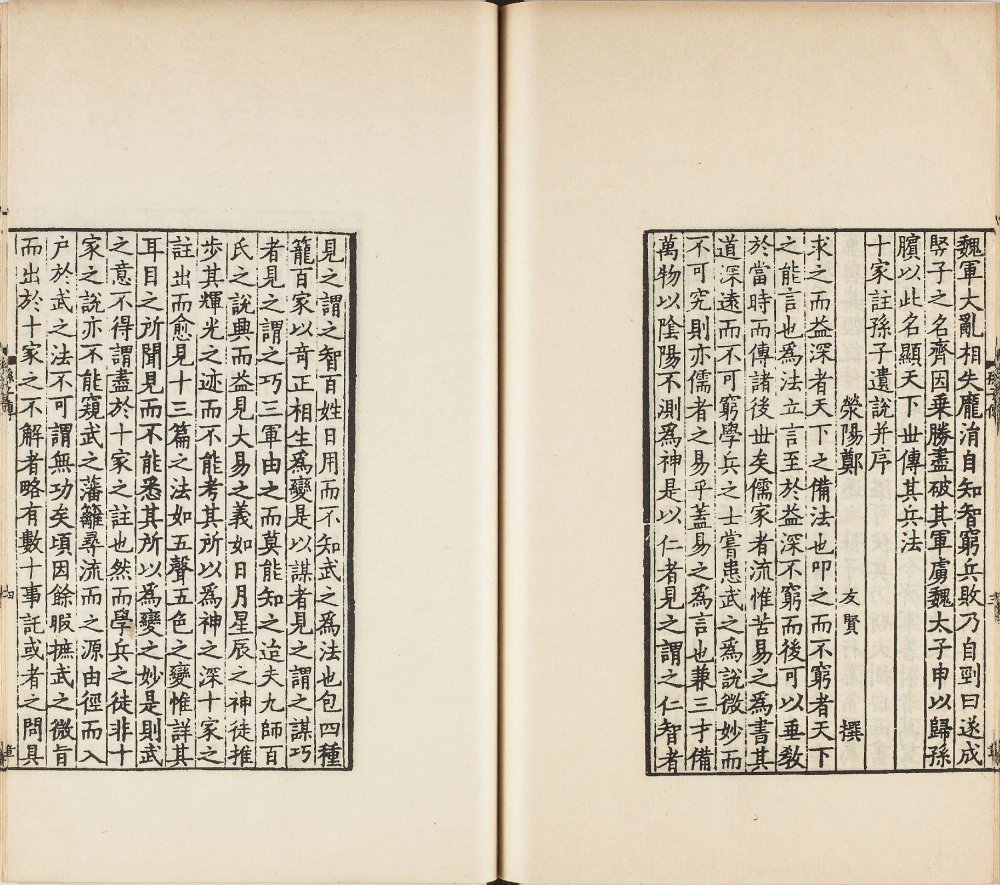 魏軍大亂相失龐涓自知智窮兵敗乃自剄曰遂成
竪子之名齊因乗勝盡破其軍虜魏太子申以歸孫
臏以此名顯天下丗傳其兵法
十家註孫子遺説并序
滎陽鄭 友賢 撰
求之而益深者天下之備法也叩之而不窮者天下
之能言也爲法立言至於益深不窮而後可以垂敎
於當時而傳諸後丗矣儒家者流惟苦易之爲書其
道深逺而不可窮學兵之士嘗患武之爲説微妙而
不可究則亦儒者之易乎蓋易之爲言也兼三才備
萬物以陰陽不測爲神是以仁者見之謂之仁智者
見之謂之智百姓日用而不知武之爲法也包四種
籠百家以奇正相生爲變是以謀者見之謂之謀巧
者見之謂之巧三軍由之而莫能知之迨夫九師百
氏之説興而益見大易之義如日月星辰之神徒推
步其輝光之迹而不能考其所以爲神之深十家之
註出而愈見十三篇之法如五聲五色之變惟詳其
耳目之所聞見而不能悉其所以爲變之妙是則武
之意不得謂盡於十家之註也然而學兵之徒非十
家之説亦不能窺武之藩籬尋流而之源由徑而入
户於武之法不可謂無功矣頃因餘暇摭武之微旨
而出於十家之不解者略有數十事託或者之問具